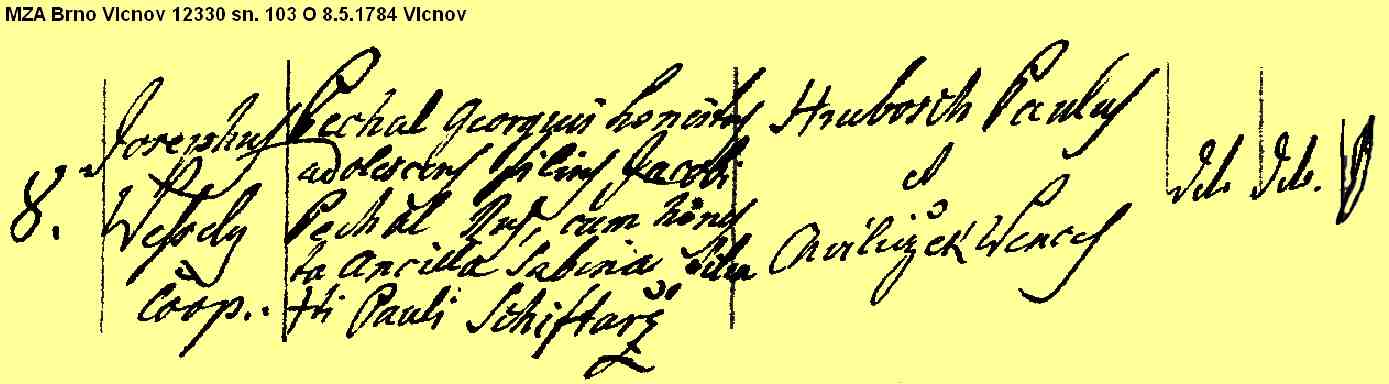 MZA Brno Vlcnov 12330 sn. 103 O 8.5.1784 Vlcnov
8.
Josephus
Wessely
Coop.
Pechal Georgius honestus
adolescens filius Jacobi
Pechal Rus, cum hones
ta ancilla Sabina filia
Pauli Schiftarž
Hrubosch Paulus
et
Wences